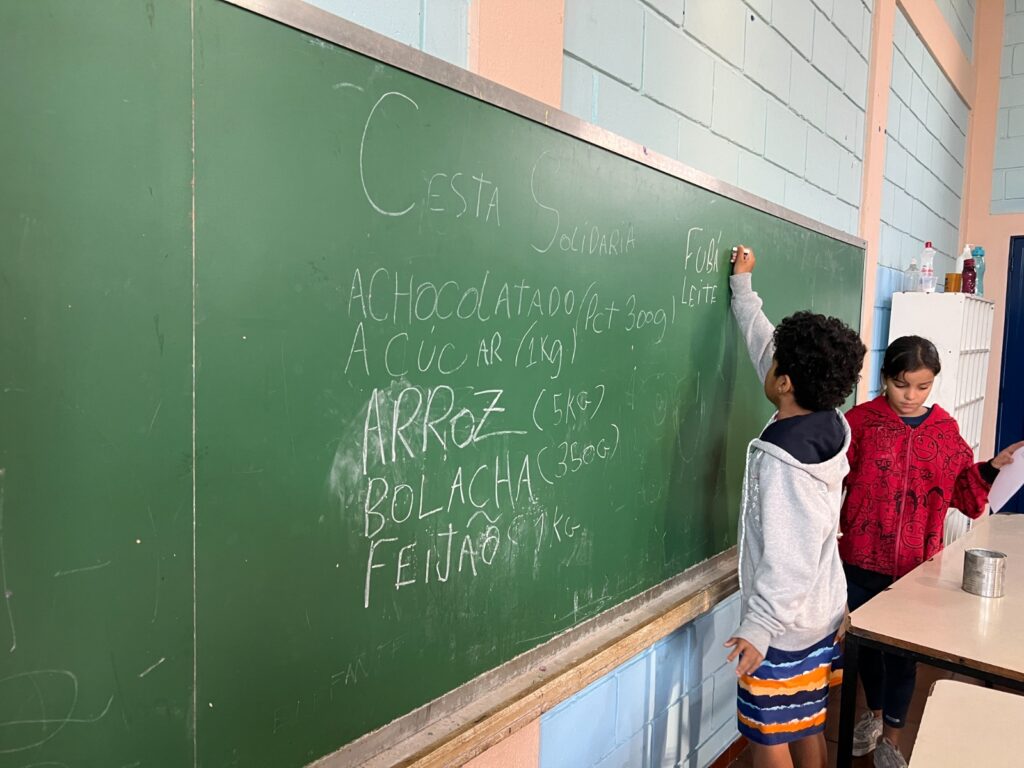 CESTA SOLIDARIA
ACHOCOLATADO (Pct 300g)
AÇUCAR (1Kg)
ARROZ (5KG)
BOLACHA (350G)
FEIJÃO (1KG
FUBÁ
LEITE